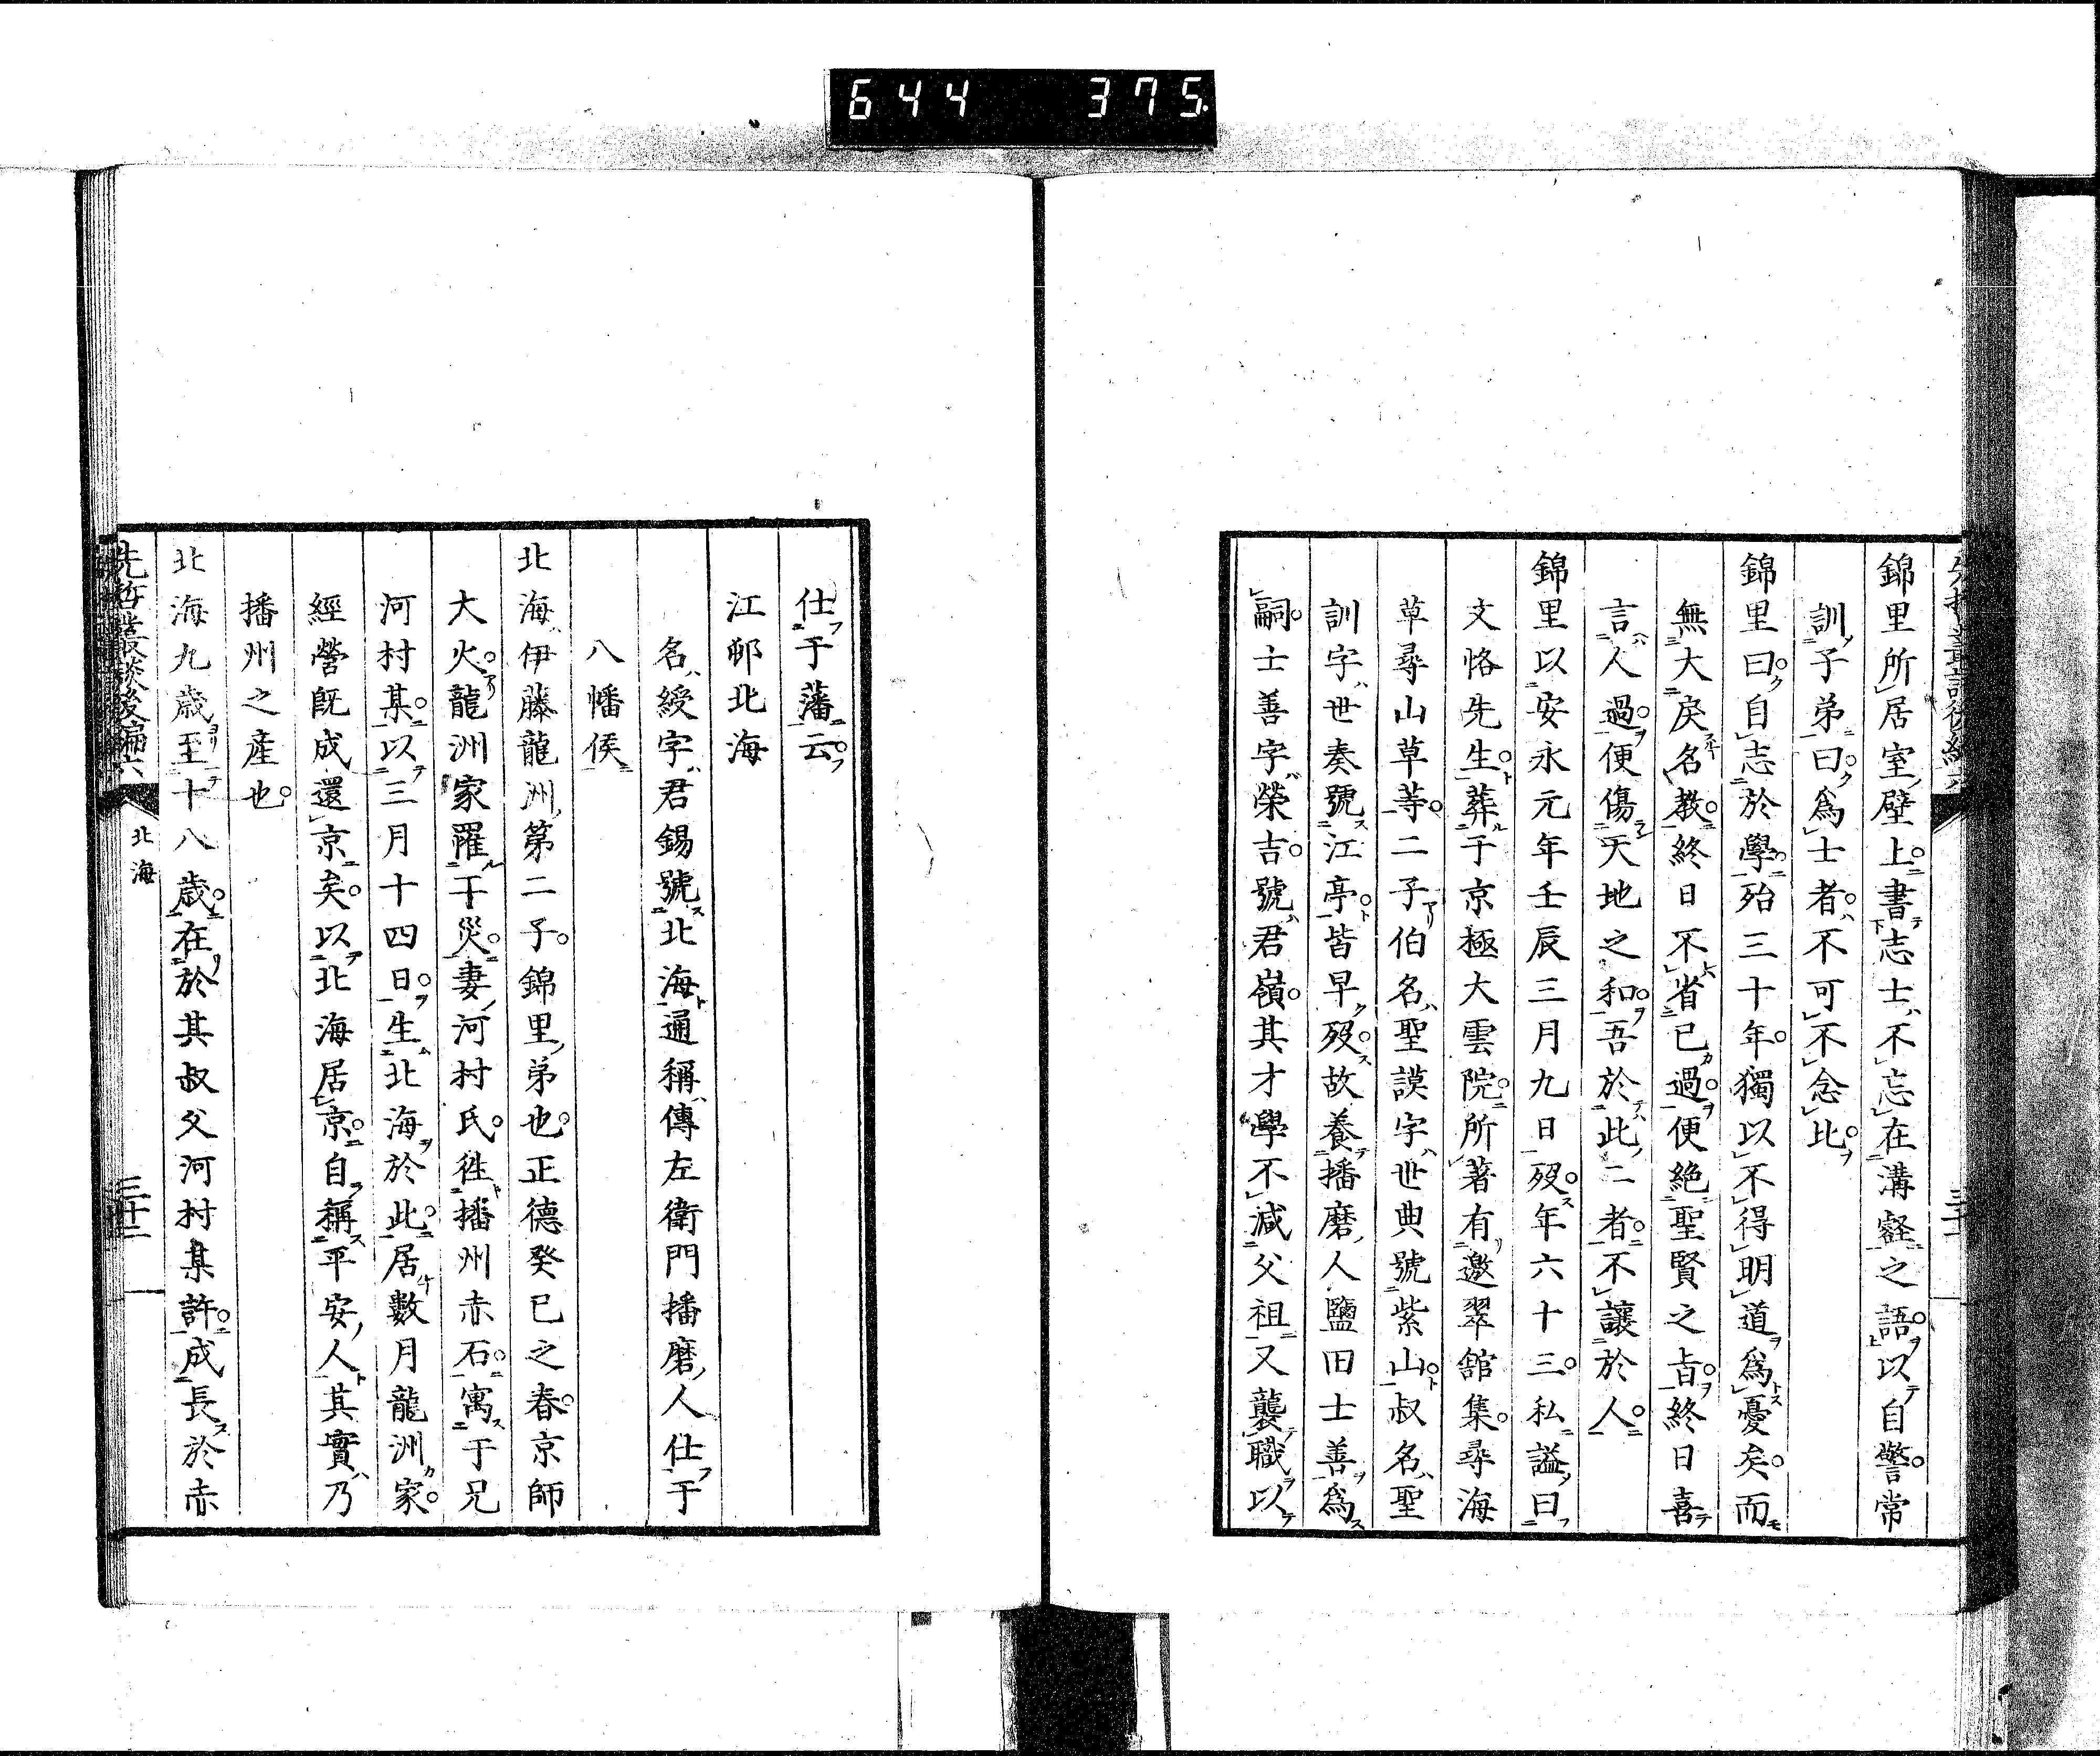 644 375
錦里所居室壁上書志士不忘在溝壑之語以自警常
訓子弟曰爲士者不可不念比
錦里曰自志於學殆三十年獨以不得明道爲憂矣而
無大戾名教終日不省已過便絶聖賢之旨終日喜
言人過便傷天地之和吾於此二者不讓於人
錦里以安永元年壬辰三月九日歿年六十三私謚曰
文恪先生葬于京極大雲院所著有邀翠館集尋海
草尋山草等二子伯名聖謨字世典號紫山叔名聖
訓字世奏號江亭皆早歿故養播磨人鹽田士善爲
嗣士善字榮吉號君嶺其才學不減父祖又襲職以
仕于藩云
江邨北海
名綬字君錫號北海通稱傳左衛門播磨人仕于
八幡侯
北海伊藤龍洲第二子錦里弟也正德癸巳之春京師
大火龍洲家罹干災妻河村氏徃播州赤石寓于兄
河村某以三月十四日生北海於此居數月龍洲家
經營既成還京矣以北海居京自稱平安人其實乃
播州之産也
北海九歳至十八歳在於其叔父河村某許成長於赤
先哲叢談後編六 北海 三十二